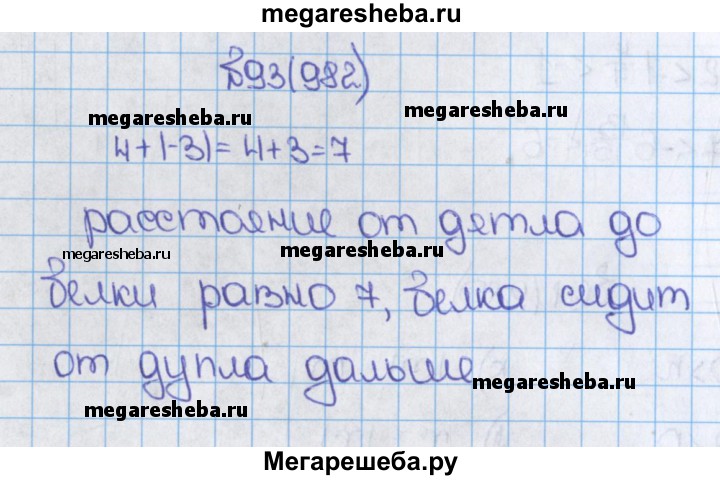 megaresheba.ru
В93(982)
megaresheba.ru
megaresheba.ru
4+|-3|=4+3=7
расстояние от дятла до
megaresheba.ru
megaresheba.ru
белки равно 7, белка сидит
от дупла дальше
megaresheba.ru
megaresheba.ru
Мегарешеба.ру